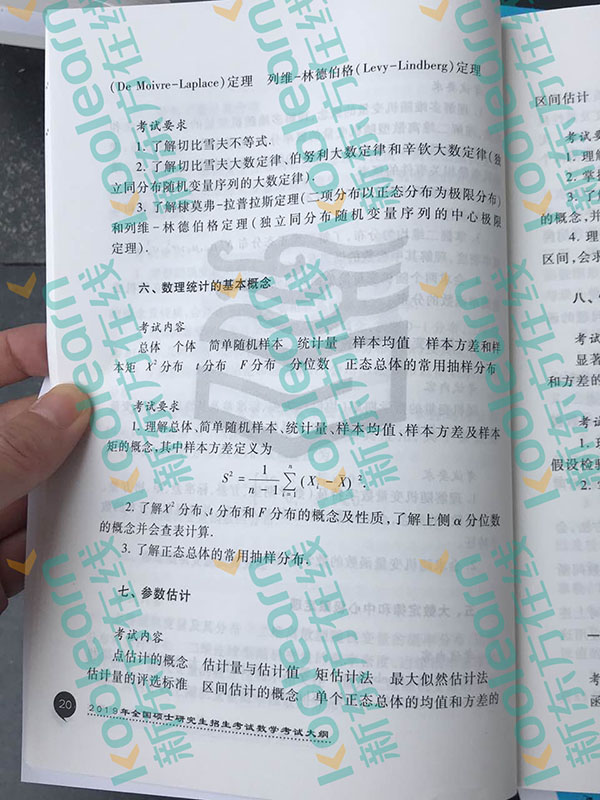 (De Moivre-Laplace)定理 列维-林德伯格(Levy-Lindberg)定理
考试要求
1. 了解切比雪夫不等式.
2. 了解切比雪夫大数定律、伯努利大数定律和辛钦大数定律(独
立同分布随机变量序列的大数定律).
3. 了解棣莫弗-拉普拉斯定理(二项分布以正态分布为极限分布)
和列维-林德伯格定理(独立同分布随机变量序列的中心极限
定理).
六、数理统计的基本概念
考试内容
总体 个体 简单随机样本 统计量 样本均值 样本方差和样
本矩 X²分布 t分布 F分布 分位数 正态总体的常用抽样分布
考试要求
1. 理解总体、简单随机样本、统计量、样本均值、样本方差及样本
矩的概念,其中样本方差定义为
S² = 1/(n-1) ∑_{i=1}^{n} (X_i - X)².
2. 了解X²分布、t分布和F分布的概念及性质,了解上侧α分位数
的概念并会查表计算.
3. 了解正态总体的常用抽样分布.
七、参数估计
考试内容
点估计的概念 估计量与估计值 矩估计法 最大似然估计法
估计量的评选标准 区间估计的概念 单个正态总体的均值和方差的
20
2019年全国硕士研究生招生考试数学考试大纲
区间估计
考试要
1. 理
2. 掌
3. 了
的概念,并
4. 理
区间,会求
八、
考试
显著
和方差的
考
1. 理
假设检验
2.
新东方在线
koolearn